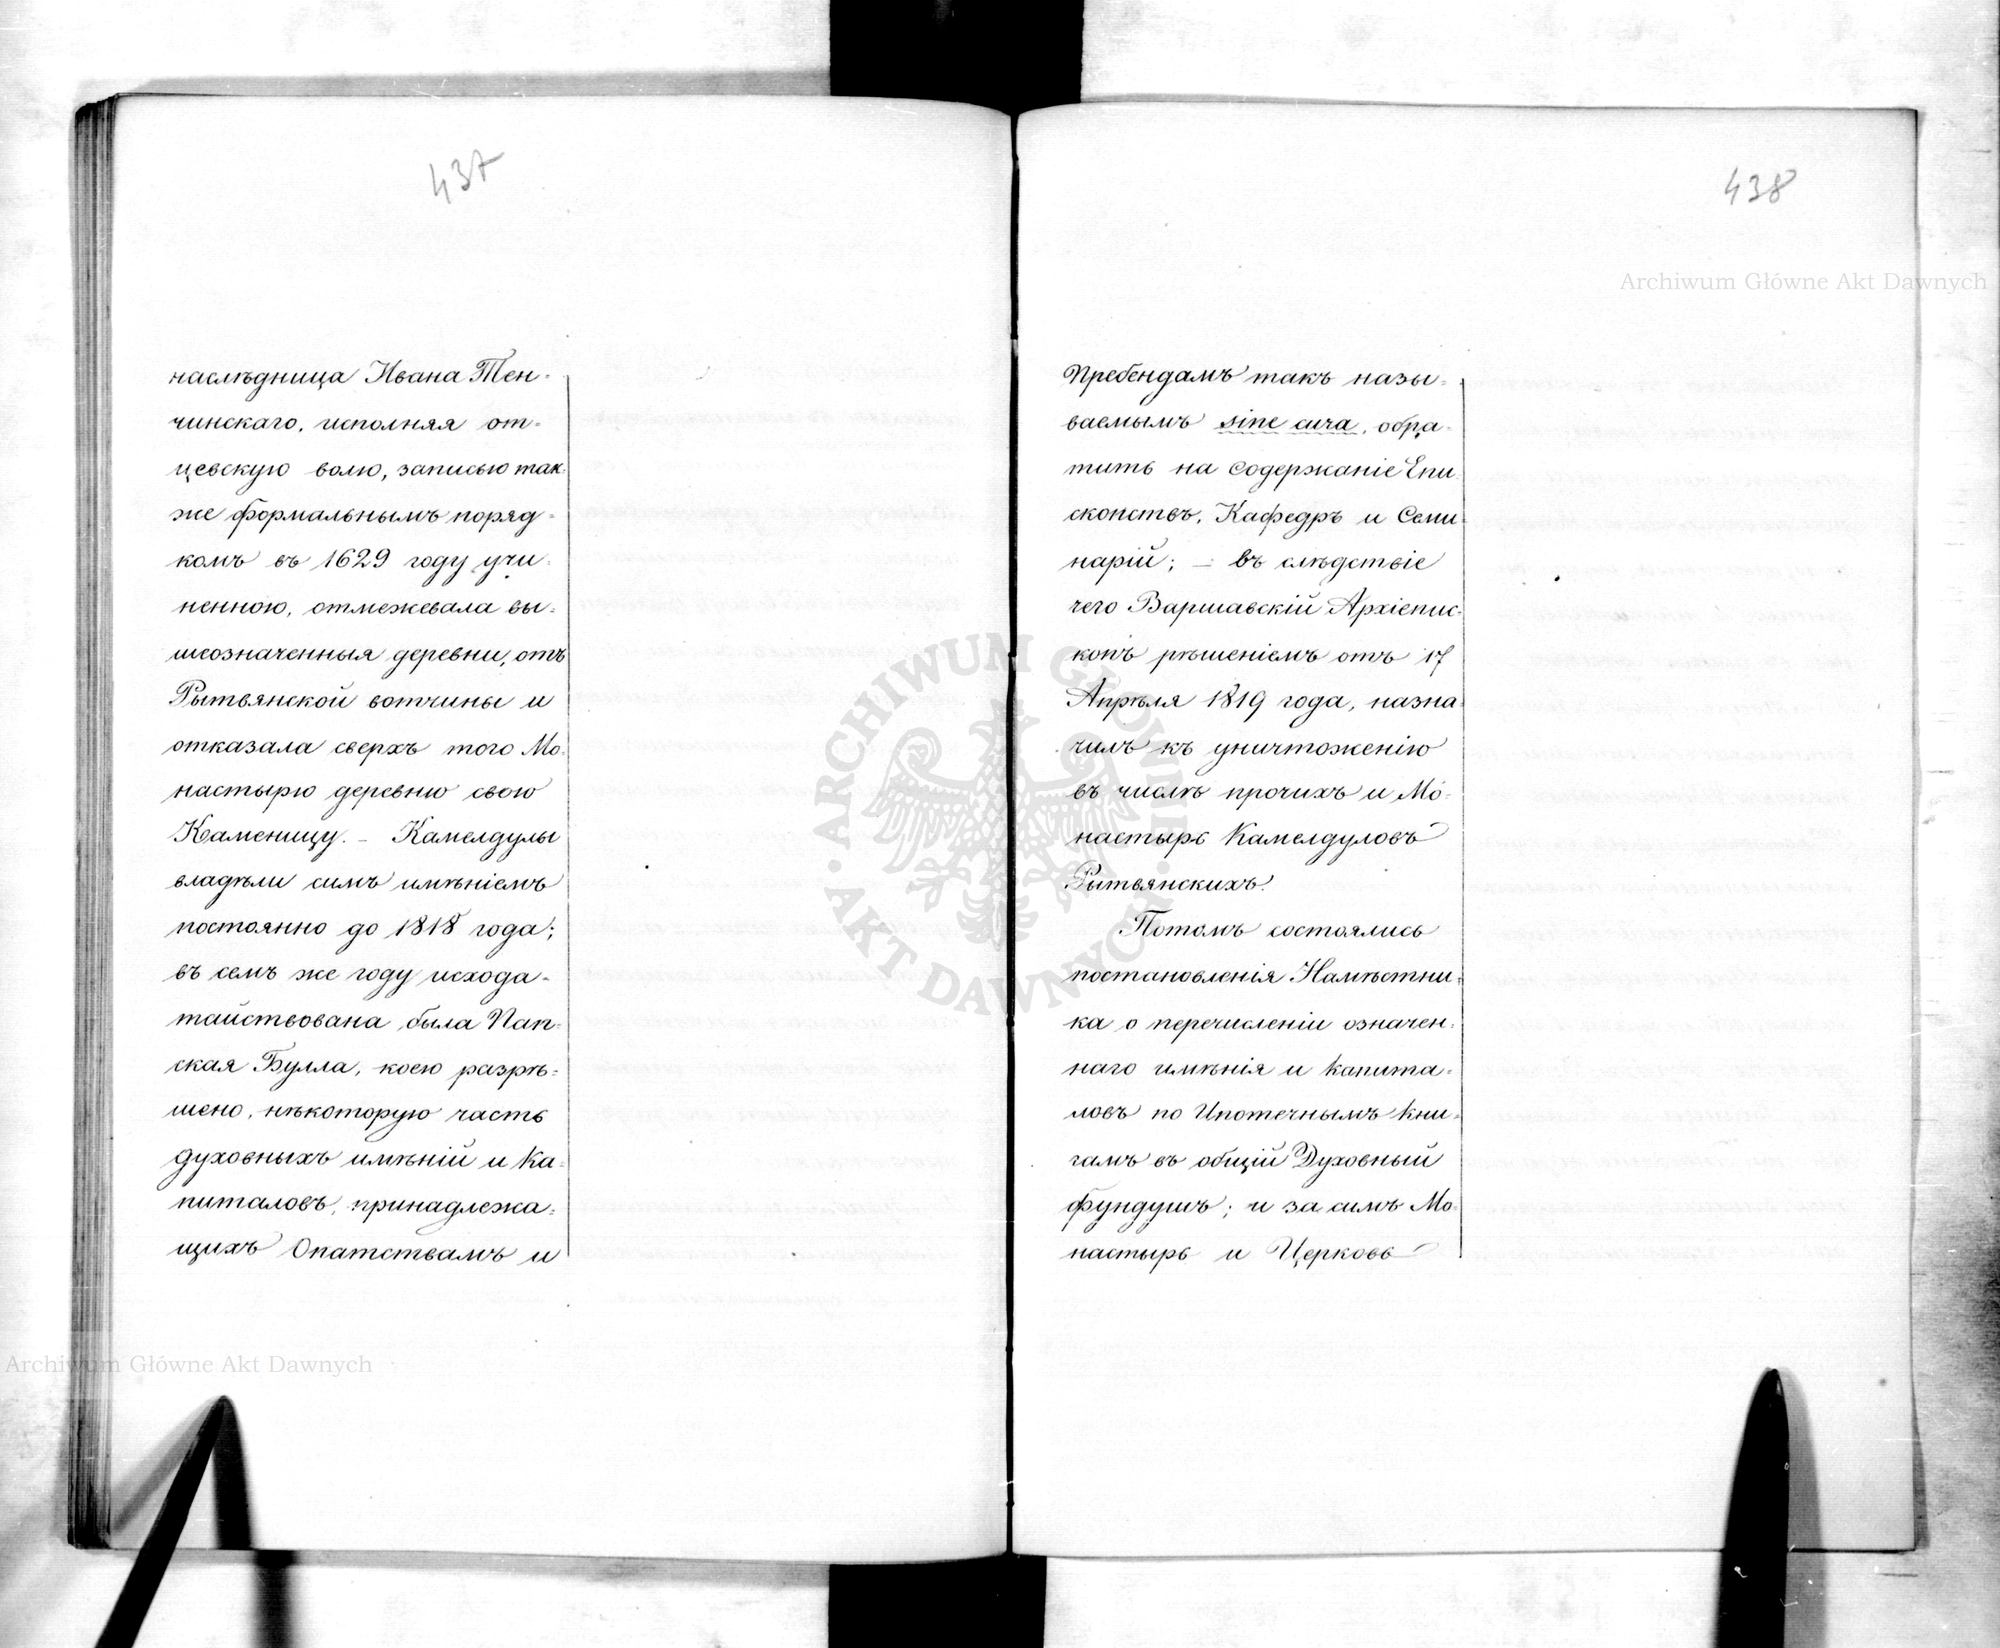 437
наслѣдница Ивана Тен-
чинскаго, исполняя от-
цевскую волю, записью так-
же формальнымъ поряд-
комъ въ 1629 году учи-
ненною, отмежевала вы-
шеозначенныя деревни, отъ
Рытвянской вотчины и
отказала сверхъ того Мо-
настырю деревню свою
Каменицу. – Камелдулы
владѣли симъ имѣніемъ
постоянно до 1818 года;
въ семъ же году исхода-
тайствована была Пап-
ская Булла, коею разрѣ-
шено, нѣкоторую часть
духовныхъ имѣній и Ка-
питаловъ, принадлежа-
щихъ Опатствамъ и
438
Пребендамъ такъ назы-
ваемымъ sine cura, обра-
тить на содержаніе Епи-
скопствъ, Кафедръ и Семи-
нарій; – въ слѣдствіе
чего Варшавскій Архіепис-
копъ рѣшеніемъ отъ 17
Апрѣля 1819 года, назна-
чилъ къ уничтоженію
въ числѣ прочихъ и Мо-
настырь Камелдуловъ
Рытвянскихъ.
Потомъ состоялись
постановленія Намѣстни-
ка о перечисленіи означен-
наго имѣнія и капита-
ловъ по Ипотечнымъ кни-
гамъ въ общій Духовный
фундушъ; и за симъ Мо-
настырь и Церковь
Archiwum Główne Akt Dawnych
ARCHIWUM GŁÓWNE AKT DAWNYCH
Archiwum Główne Akt Dawnych